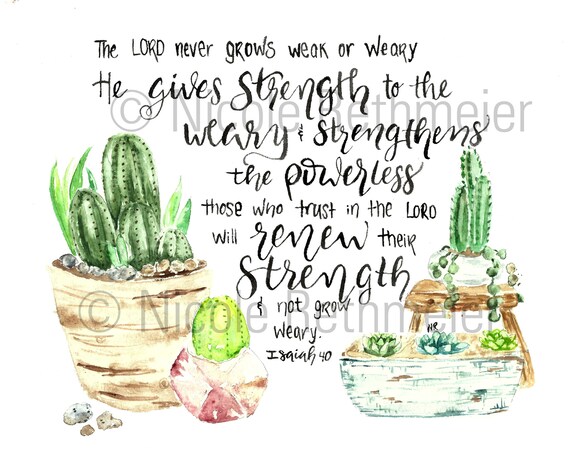 The LORD never grows weak or weary
He gives Strength to the
weary & strengthens
the powerless
those who trust in the LORD
will renew their
Strength
& not grow
weary.
Isaiah 40
© Nicole Bethmeier
© Nicole Bethmeier